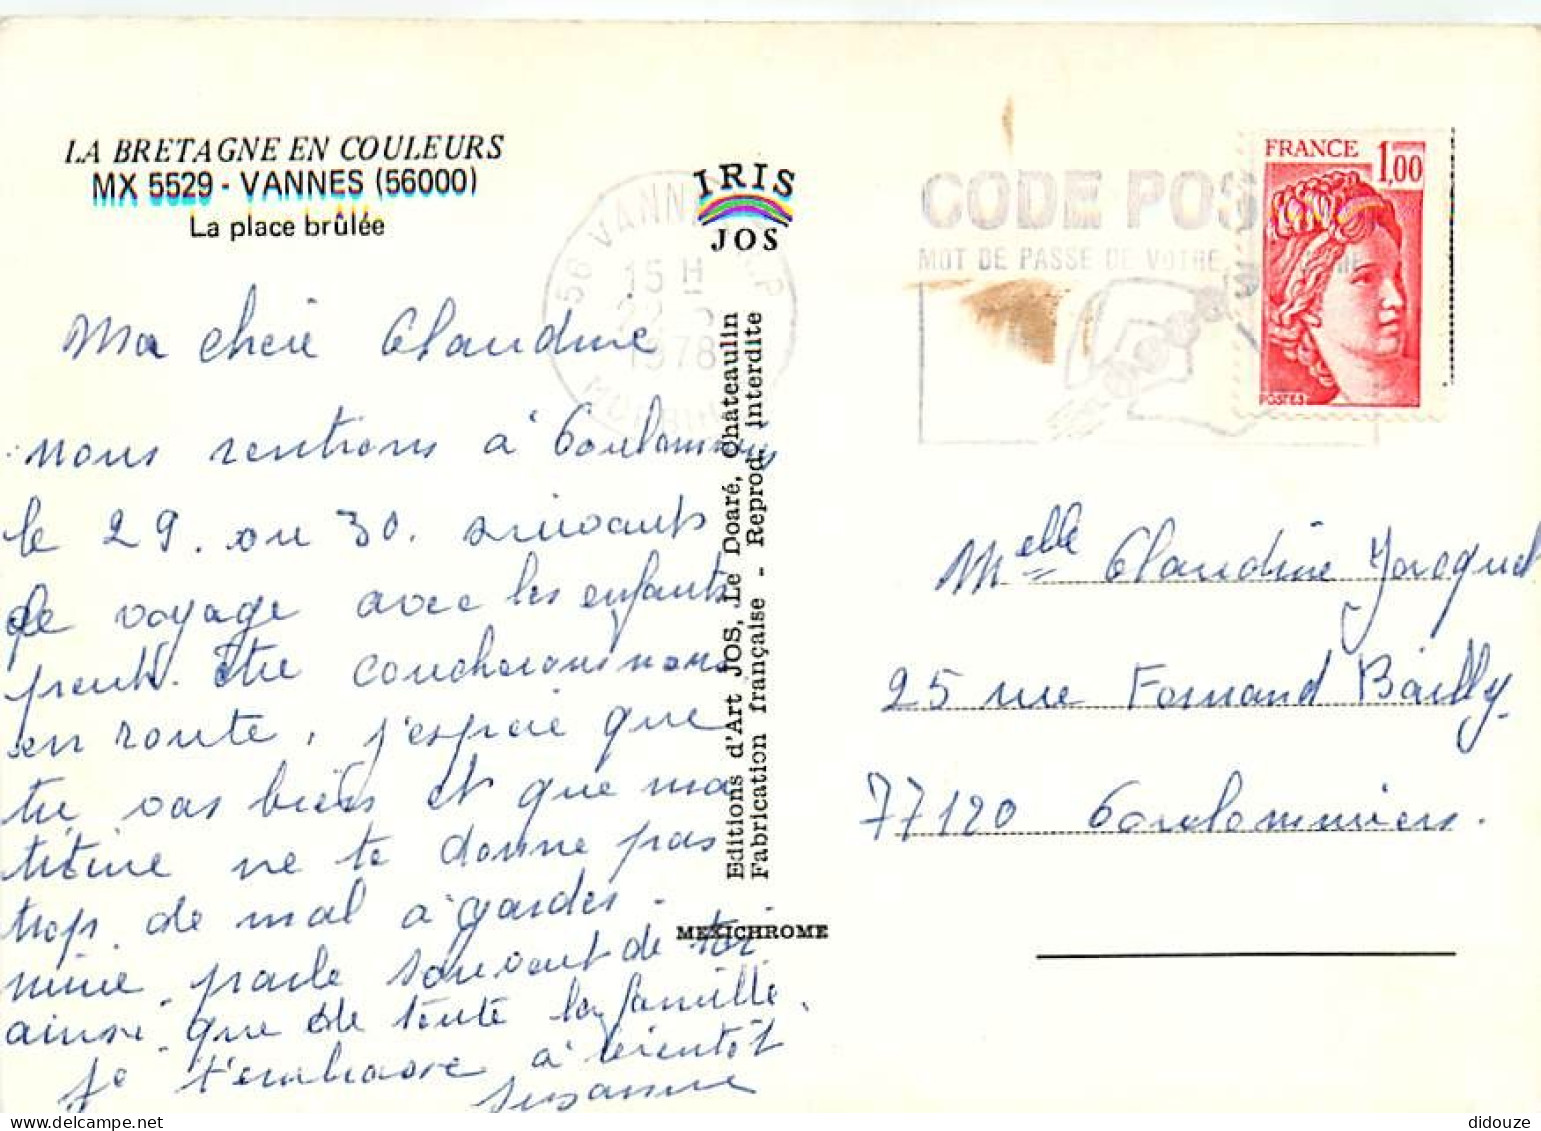 LA BRETAGNE EN COULEURS
MX 5529 - VANNES (56000)
La place brûlée
Ma cheie Claudine
nous rentrons à Coulommiers
le 29. ou 30. suivants
le voyage avec les enfants
peut. être coucherons nous
en route, j'espère que
tu vas bien et que ma
titine ne te donne pas
trop de mal à garder.
mimie parle souvent de toi
ainsi que de toute la famille.
Je t'embrasse à bientôt
Susanne
IRIS
JOS
Editions d'Art JOS, Le Doaré, Châteaulin
Fabrication française - Reprod. interdite
MEXICHROME
56 VANNES R.P
15 H
1978
MORBIHAN
CODE POS
MOT DE PASSE DE VOTRE
FRANCE 1,00
POSTES
Melle Claudine Jacquet
25 rue Fernand Bailly
77120 Coulommiers.
didouze